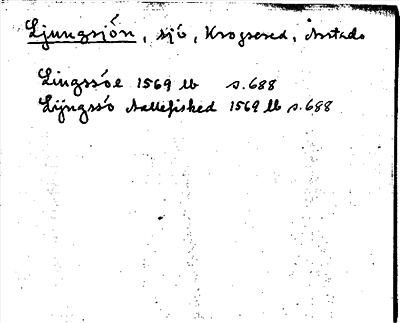 Ljungsjön, sjö, Krogsered, Årstads
Lingssöe 1569 lb s.688
Lÿngssö Aallefisked 1569 lb s.688